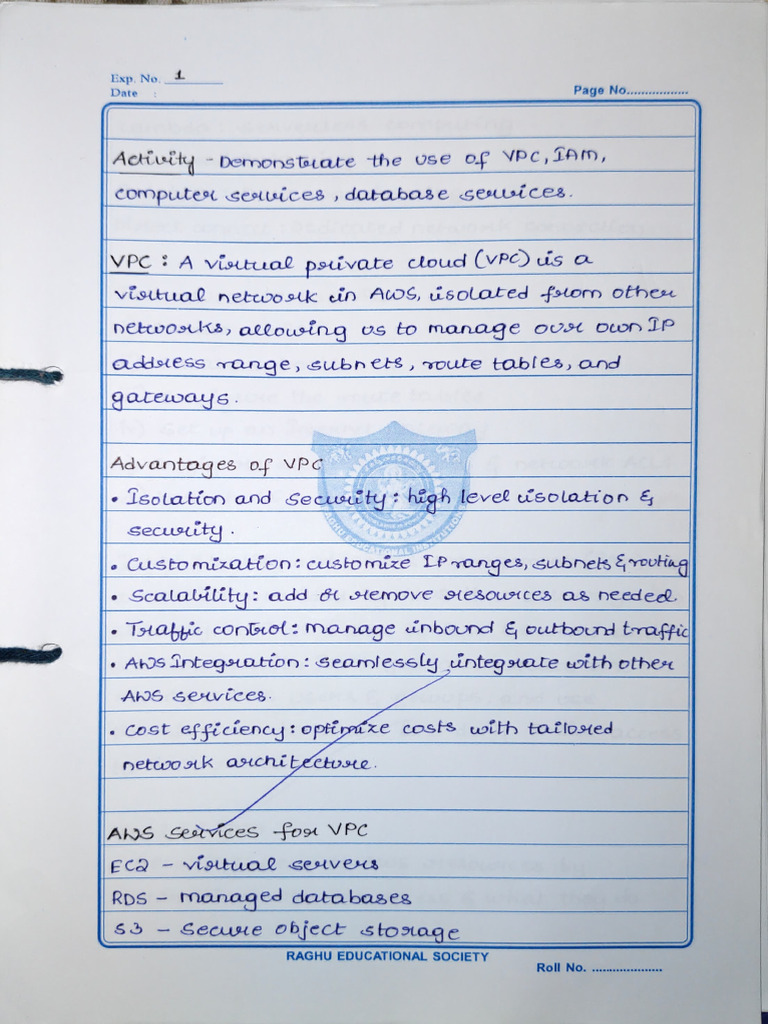 Exp. No. 1
Date :
Page No.................
Activity - Demonstrate the use of VPC, IAM,
computer services, database services.
VPC : A virtual private cloud (VPC) is a
virtual network in AWS, isolated from other
networks, allowing us to manage our own IP
address range, subnets, route tables, and
gateways.
Advantages of VPC
• Isolation and security: high level isolation &
security.
• Customization: customize IP ranges, subnets & routing
• Scalability: add or remove resources as needed
• Traffic control: manage inbound & outbound traffic
• AWS Integration: seamlessly integrate with other
AWS services.
• Cost efficiency: optimize costs with tailored
network architecture.
AWS Services for VPC
EC2 - virtual servers
RDS - managed databases
S3 - Secure object storage
RAGHU EDUCATIONAL SOCIETY
Roll No. .....................